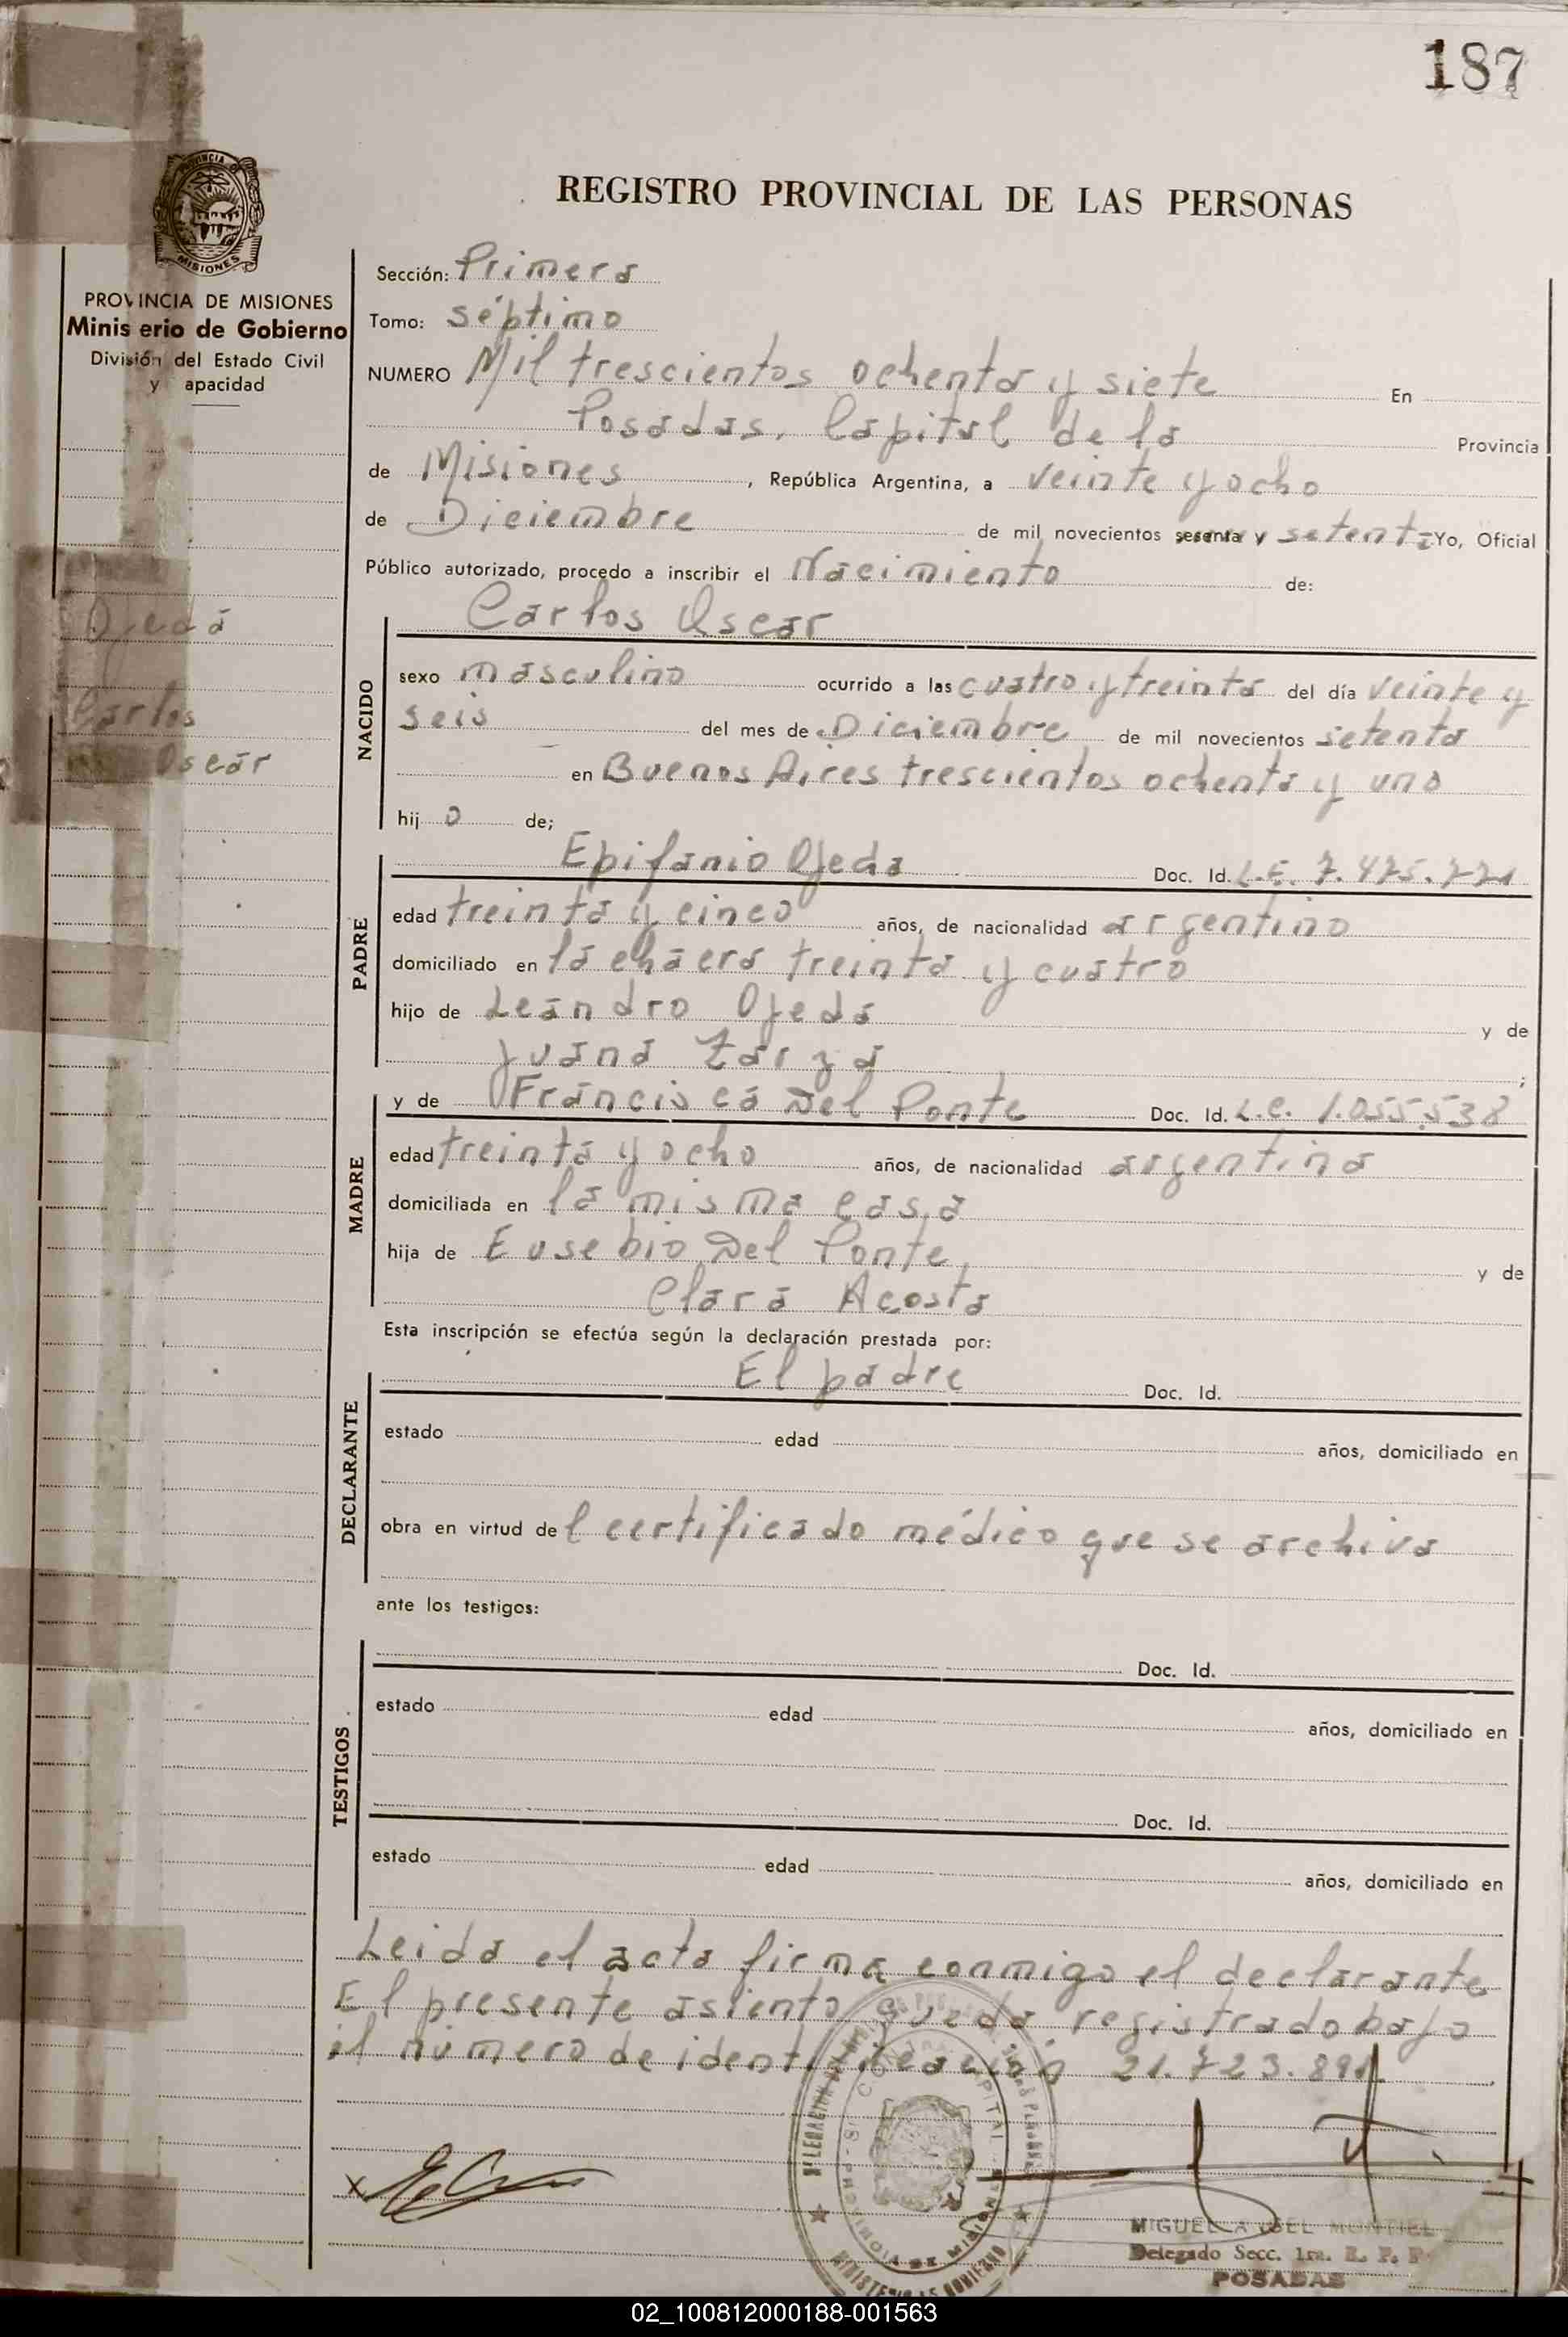 187
REGISTRO PROVINCIAL DE LAS PERSONAS
PROVINCIA DE MISIONES
Minis erio de Gobierno
División del Estado Civil
y apacidad
Ojeda
Carlos
Oscar
Sección: Primera
Tomo: séptimo
NUMERO Mil trescientos ochenta y siete En
Posadas, Capital de la Provincia
de Misiones, República Argentina, a veinte y ocho
de Diciembre de mil novecientos sesenta y setenta Yo, Oficial
Público autorizado, procedo a inscribir el Nacimiento de:
NACIDO
Carlos Oscar
sexo masculino ocurrido a las cuatro y treinta del día veinte y
seis del mes de Diciembre de mil novecientos setenta
en Buenos Aires trescientos ochenta y uno
hij o de;
PADRE
Epifanio Ojeda Doc. Id. L.E. 7.475.771
edad treinta y cinco años, de nacionalidad argentino
domiciliado en la chacra treinta y cuatro
hijo de Leandro Ojeda y de
Juana Zarza ;
MADRE
y de Francisca Del Ponte Doc. Id. L.C. 1.055.538
edad treinta y ocho años, de nacionalidad argentina
domiciliada en la misma casa
hija de Eusebio Del Ponte y de
Clara Acosta
Esta inscripción se efectúa según la declaración prestada por:
DECLARANTE
El padre Doc. Id.
estado edad años, domiciliado en
obra en virtud del certificado médico que se archiva
ante los testigos:
TESTIGOS
Doc. Id.
estado edad años, domiciliado en
Doc. Id.
estado edad años, domiciliado en
Leida el acta firma conmigo el declarante
El presente asiento queda registrado bajo
el número de identificación 21.723.891
MIGUEL ANGEL MONTIEL
Delegado Secc. 1ra. R. P. P.
POSADAS
02_100812000188-001563